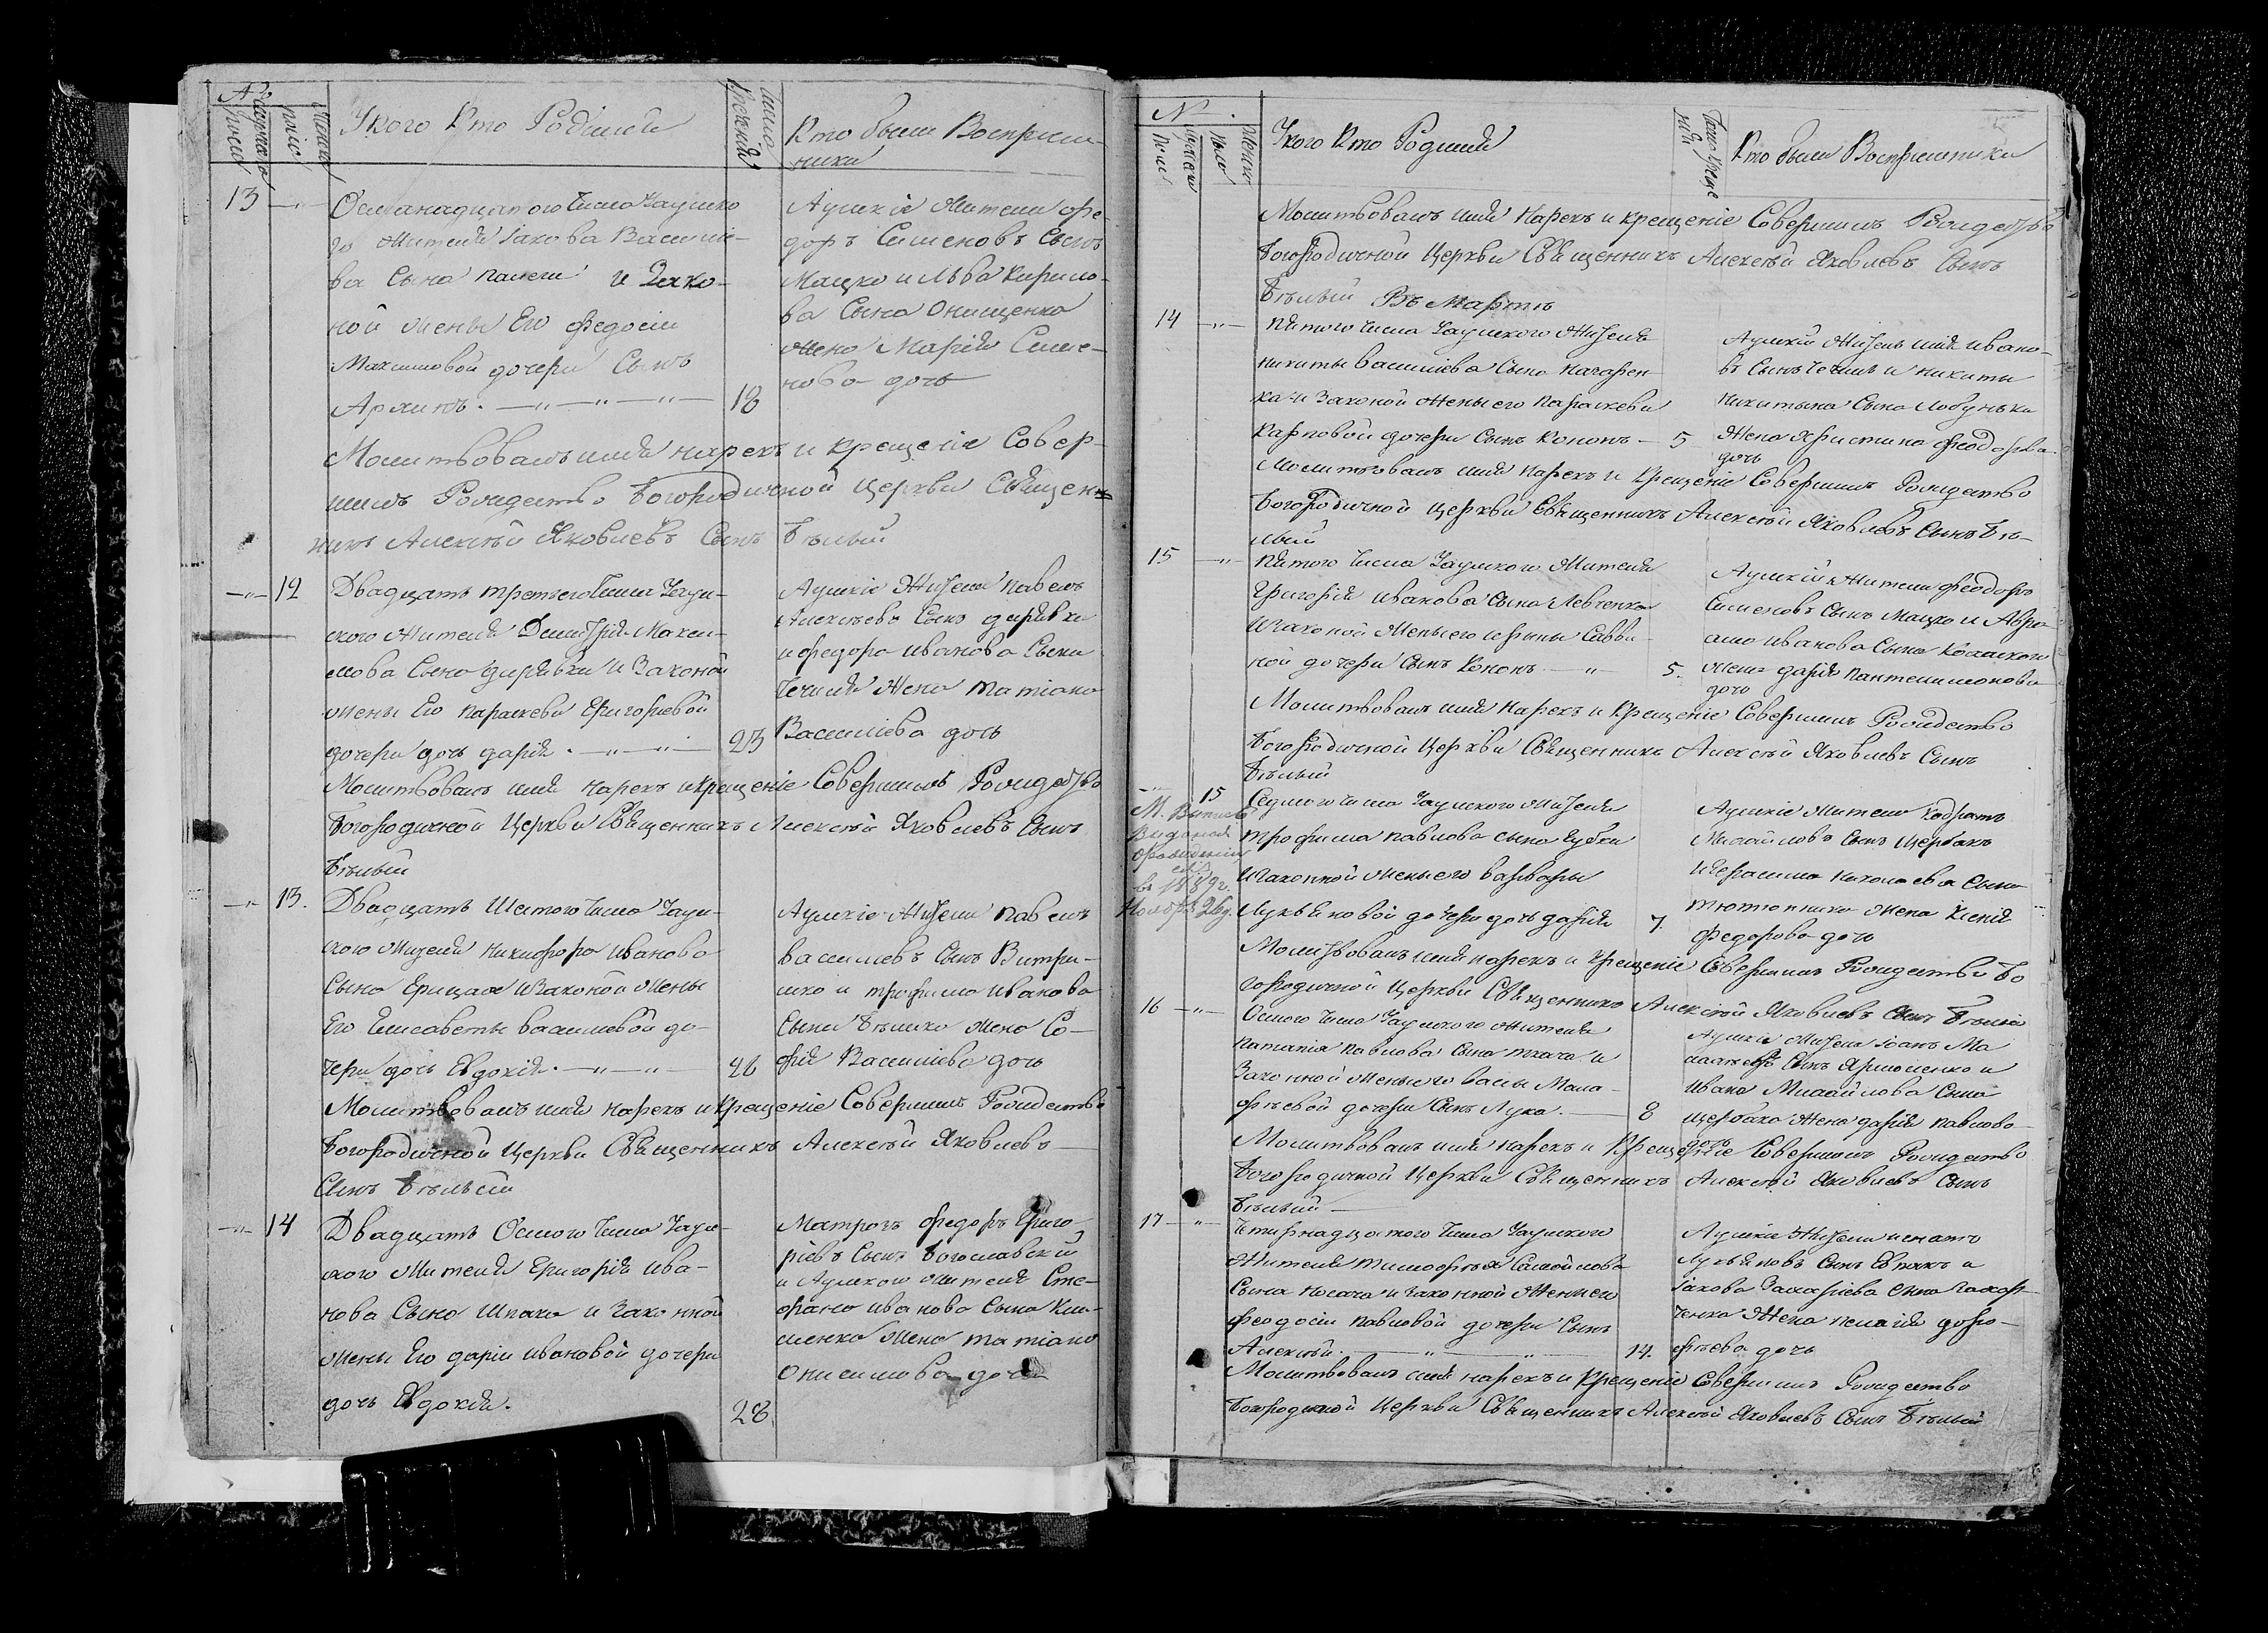 №
мужеска
пола
женска
У кого Кто Родился
число
крещенія
Кто были Воспріем-
ники
13 —"—
Осмънадцатого Числа
Жителя Іакова Василіе-
ва Сына и Закo-
ной жены Его Федосіи
Максимовой дочери Сынъ
Архипъ. —"—"—"— 18
Жители Фе-
доръ Сименовъ Сынъ
Мацко и Льва Кирило-
ва Сына Онищенко
жена Марія Симе-
нова дочь
Молитвовалъ имя нарекъ и крещеніе Совер-
шилъ Рождество Богородичной Церкви Священ-
никъ Алексѣй Яковлевъ Сынъ Бѣлый
—"— 12
Двадцатъ третьего Числа
ского Жителя Димитрія Макси-
мова Сына и Законой
жены Его Параскевы Григорьевой
дочери дочь Дарія. —"—"— 23
Жители Павелъ
Алексѣевъ Сынъ
и Федора Иванова Сына
жена Татіана
Василіева дочь
Молитвовалъ имя нарекъ и крещеніе Совершилъ Рождество
Богородичной Церкви Священникъ Алексѣй Яковлевъ Сынъ
Бѣлый
—"— 13.
Двадцатъ Шестого Числа
ского Жителя Никифора Иванова
Сына Грицая и Законой Жены
Его Елисаветы Василіевой до-
чери дочь Евдокія. —"—"— 26
Жители Павелъ
Василіевъ Сынъ
и Трофима Иванова
Сына жена Со-
фія Василіева дочь
Молитвовалъ имя нарекъ и крещеніе Совершилъ Рождество
Богородичной Церкви Священникъ Алексѣй Яковлевъ
Сынъ Бѣлый
—"— 14
Двадцатъ Осмого Числа
ского Жителя Григорія Ива-
нова Сына Шпака и Законной
жены Его Даріи Ивановой дочери
дочь Евдокія. 28
Матрозъ Федоръ Григо-
ріевъ Сынъ Богославскій
и Жителя Сте-
фана Иванова Сына Кли-
менка жена Татіана
Онисимова дочь
№.
У кого Кто Родился
Кто были Воспріемники
Молитвовалъ имя Нарекъ и крещеніе Совершилъ Рождество
Богородичной Церкви Священникъ Алексѣй Яковлевъ Сынъ
Бѣлый Въ Мартѣ
14 —"—
Пятого Числа Жителя
Никиты Василіева Сына
ка и Законой Жены его Параскеви
Карповой дочери Сынъ Кононъ — 5
Житель Ивано-
въ Сынъ и Никиты
Никитина Сына
Жена Христина Феодорова
дочь
Молитвовалъ имя Нарекъ и Крещеніе Совершилъ Рождество
Богородичной Церкви Священникъ Алексѣй Яковлевъ Сынъ Бѣ-
лый
15 —"—
Пятого Числа Жителя
Григорія Иванова Сына Левченка
и Законой Жены его Ирины Савви-
ной дочери Сынъ Кононъ —"— 5.
Жители Феодоръ
Сименовъ Сынъ Мацко и Авра-
ама Иванова Сына
жена Дарія Пантелимонова
дочь
Молитвовалъ имя Нарекъ и Крещеніе Совершилъ Рождество
Богородичной Церкви Священникъ Алексѣй Яковлевъ Сынъ
Бѣлый
—"— 15
в 1889 г.
Ноября 26 д.
Седмого Числа Жителя
Трофима Павлова Сына Губки
и Законной Жены его Варвары
Лукьяновой дочери дочь Дарія 7.
Жители
Михайловъ Сынъ Щербакъ
и Герасима Николаева Сына
Тютюнника жена Ксенія
Федорова дочь
Молитвовалъ имя нарекъ и крещеніе Совершилъ Рождество Бо
городичной Церкви Священникъ Алексѣй Яковлевъ Сынъ Бѣлый
16 —"—
Осмого Числа Жителя
Павлова Сына Ткача и
Законной Жены его
дочери Сынъ Лука. — 8
Жители Іоанъ
Сынъ Ярмоленко и
Ивана Михайлова Сына
Щербака Жена Дарія Павлова
дочь
Молитвовалъ имя нарекъ и Крещеніе Совершилъ Рождество
Богородичной Церкви Священникъ Алексѣй Яковлевъ Сынъ
Бѣлый —
17 —"—
Четирнадцатого Числа
Жителя Тимофѣя Самойлова
Сына Носача и Законной Жены его
Феодосіи Павловой дочери Сынъ
Алексѣй. —"—"— 14.
Жители Игнатъ
Лукьяновъ Сынъ и
Іакова Захаріева Сына Захар-
ченка Жена Пелагія Доро-
фѣева дочь
Молитвовалъ имя нарекъ и крещеніе Совершилъ Рождество
Богородичной Церкви Священникъ Алексѣй Яковлевъ Сынъ Бѣлый